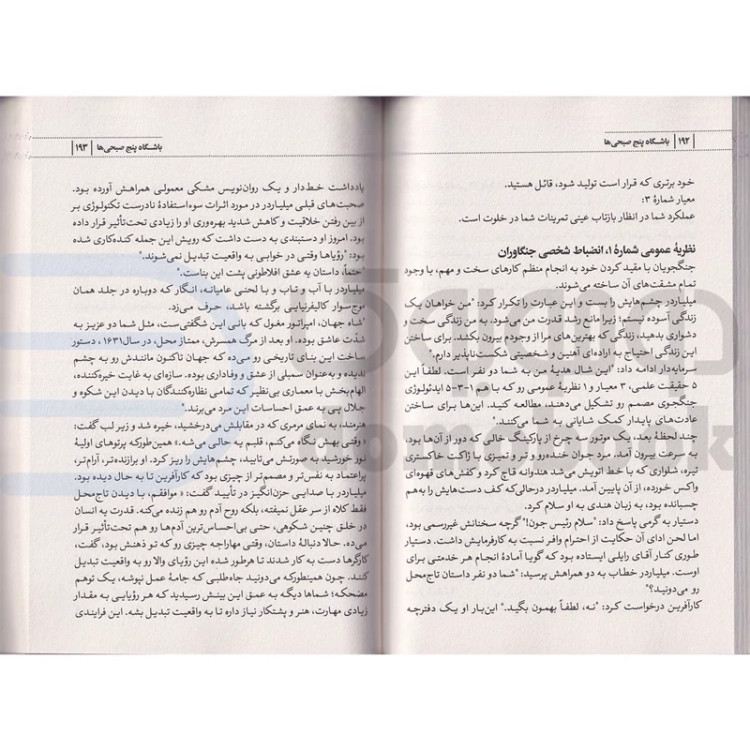 ۱۹۲ | باشگاه پنج صبحی‌ها
خود برتری که قرار است تولید شود، قائل هستید.
معیار شمارهٔ ۳:
عملکرد شما در انظار بازتاب عینی تمرینات شما در خلوت است.
نظریهٔ عمومی شمارهٔ ۱، انضباط شخصی جنگاوران
جنگجویان با مقید کردن خود به انجام منظم کارهای سخت و مهم، با وجود
تمام مشقت‌های آن ساخته می‌شوند.
میلیاردر چشم‌هایش را بست و این عبارت را تکرار کرد: "من خواهان یک
زندگی آسوده نیستم؛ زیرا مانع رشد قدرت من می‌شود. به من زندگی سخت و
دشواری بدهید، زندگی که بهترین‌های مرا از وجودم بیرون بکشد. برای ساختن
این زندگی احتیاج به اراده‌ای آهنین و شخصیتی شکست‌ناپذیر دارم."
سرمایه‌دار ادامه داد: "این شال هدیهٔ من به شما دو نفر است. لطفاً این
۵ حقیقت علمی، ۳ معیار و ۱ نظریهٔ عمومی رو که با هم ۱-۳-۵ ایدئولوژی
جنگجوی مصمم رو تشکیل می‌دهند، مطالعه کنید. این‌ها برای ساختن
عادت‌های پایدار کمک شایانی به شما می‌کنند."
چند لحظهٔ بعد، یک موتور سه چرخ از پارکینگ خالی که دور از آن‌ها بود،
به سرعت بیرون آمد. مرد جوان خنده‌رو و تر و تمیزی با ژاکت خاکستری
تیره، شلواری که با خط اتویش می‌شد هندوانه قاچ کرد و کفش‌های قهوه‌ای
واکس خورده، از آن پایین آمد. میلیاردر درحالی‌که کف دست‌هایش را به هم
چسبانده بود، به زبان هندی به او سلام کرد.
دستیار به گرمی پاسخ داد: "سلام رئیس جون!" گرچه سخنانش غیررسمی بود،
اما لحن ادای آن حکایت از احترام وافر نسبت به کارفرمایش داشت. دستیار
طوری کنار آقای رایلی ایستاده بود که گویا آمادهٔ انجام هر خدمتی برای
اوست. میلیاردر خطاب به دو همراهش پرسید: "شما دو نفر داستان تاج‌محل
رو می‌دونید؟"
کارآفرین درخواست کرد: "نه، لطفاً بهمون بگید." این‌بار او یک دفترچه
باشگاه پنج صبحی‌ها | ۱۹۳
یادداشت خط‌دار و یک روان‌نویس مشکی معمولی همراهش آورده بود.
صحبت‌های قبلی میلیاردر در مورد اثرات سوءاستفادهٔ نادرست تکنولوژی بر
از بین رفتن خلاقیت و کاهش شدید بهره‌وری او را زیادی تحت‌تأثیر قرار داده
بود. امروز او دستبندی به دست داشت که رویش این جمله کنده‌کاری شده
بود: "رؤیاها وقتی در خوابی به واقعیت تبدیل نمی‌شوند."
"حتماً، داستان یه عشق افلاطونی پشت این بناست."
میلیاردر با آب و تاب و با لحنی عامیانه، انگار که دوباره در جلد همان
موج‌سوار کالیفرنیایی برگشته باشد، حرف می‌زد.
"شاه جهان، امپراتور مغول که بانی این شگفتی‌ست، مثل شما دو عزیز به
شدّت عاشق بوده. او بعد از مرگ همسرش، ممتاز محل، در سال۱۶۳۱ ، دستور
ساخت این بنای تاریخی رو می‌ده که جهان تاکنون مانندش رو به چشم
ندیده و به‌عنوان سمبلی از عشق و وفاداری بوده. سازه‌ای به غایت خیره‌کننده،
الهام‌بخش با معماری بی‌نظیر که تمامی نظاره‌کنندگان با دیدن این شکوه و
جلال پی به عمق احساسات این مرد می‌برند."
هنرمند، به نمای مرمری که در مقابلش می‌درخشید، خیره شد و زیر لب گفت:
«وقتی بهش نگاه می‌کنم، قلبم یه حالی می‌شه.» همین‌طورکه پرتوهای اولیهٔ
نور خورشید به صورتش می‌تابید، چشم‌هایش را ریز کرد. او برازنده‌تر، آرام‌تر،
پراعتماد به نفس‌تر و مصمم‌تر از چیزی بود که کارآفرین تا به حال دیده بود.
میلیاردر با صدایی حزن‌انگیز در تأیید گفت: « موافقم، با دیدن تاج‌محل
فقط کلاه از سر عقل نمیفته، بلکه روح آدم رو هم زنده می‌کنه. قدرت یه انسان
در خلق چنین شکوهی، حتی بی‌احساس‌ترین آدم‌ها رو هم تحت‌تأثیر قرار
می‌ده. حالا دنبالهٔ داستان، وقتی مهاراجه چیزی رو که تو ذهنش بود، گفت،
کارگرها دست به کار شدند تا هرطور شده این رؤیای والا رو به واقعیت تبدیل
کنند. چون همینطورکه می‌دونید جاه‌طلبی که جامهٔ عمل نپوشه، یک توهم
مضحکه؛ شماها دیگه به عمق این بینش رسیدید که هر رؤیایی به مقدار
زیادی مهارت، هنر و پشتکار نیاز داره تا به واقعیت تبدیل بشه. این فرایندی